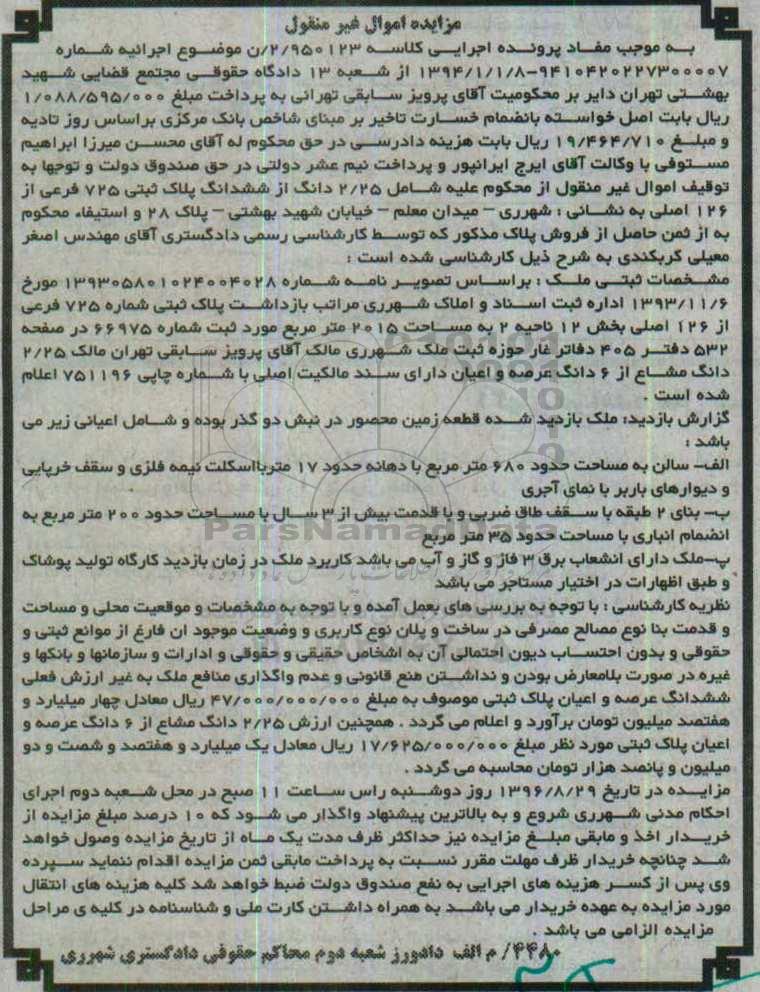 مزایده اموال غیر منقول
به موجب مفاد پرونده اجرایی کلاسه ۲/۹۵۰۱۲۳/ن موضوع اجرائیه شماره
۹۴۱۰۴۲۰۲۲۷۳۰۰۰۰۷-۱۳۹۴/۱/۱/۸ از شعبه ۱۳ دادگاه حقوقی مجتمع قضایی شهید
بهشتی تهران دایر بر محکومیت آقای پرویز سابقی تهرانی به پرداخت مبلغ ۱/۰۸۸/۵۹۵/۰۰۰
ریال بابت اصل خواسته بانضمام خسارت تاخیر بر مبنای شاخص بانک مرکزی براساس روز تادیه
و مبلغ ۱۹/۴۶۴/۷۱۰ ریال بابت هزینه دادرسی در حق محکوم له آقای محسن میرزا ابراهیم
مستوفی با وکالت آقای ایرج ایرانپور و پرداخت نیم عشر دولتی در حق صندوق دولت و توجها به
توقیف اموال غیر منقول از محکوم علیه شامل ۲/۲۵ دانگ از ششدانگ پلاک ثبتی ۷۲۵ فرعی از
۱۲۶ اصلی به نشانی : شهرری – میدان معلم – خیابان شهید بهشتی – پلاک ۲۸ و استیفاء محکوم
به از ثمن حاصل از فروش پلاک مذکور که توسط کارشناسی رسمی دادگستری آقای مهندس اصغر
معیلی کربکندی به شرح ذیل کارشناسی شده است :
مشخصات ثبتی ملک : براساس تصویر نامه شماره ۱۳۹۳۰۵۸۰۱۰۲۴۰۰۴۰۲۸ مورخ
۱۳۹۳/۱۱/۶ اداره ثبت اسناد و املاک شهرری مراتب بازداشت پلاک ثبتی شماره ۷۲۵ فرعی
از ۱۲۶ اصلی بخش ۱۲ ناحیه ۲ به مساحت ۲۰۱۵ متر مربع مورد ثبت شماره ۶۶۹۷۵ در صفحه
۵۳۲ دفتر ۴۰۵ دفاتر غار حوزه ثبت ملک شهرری مالک آقای پرویز سابقی تهران مالک ۲/۲۵
دانگ مشاع از ۶ دانگ عرصه و اعیان دارای سند مالکیت اصلی با شماره چاپی ۷۵۱۱۹۶ اعلام
شده است .
گزارش بازدید: ملک بازدید شده قطعه زمین محصور در نبش دو گذر بوده و شامل اعیانی زیر می
باشد :
الف– سالن به مساحت حدود ۶۸۰ متر مربع با دهانه حدود ۱۷ متربااسکلت نیمه فلزی و سقف خرپایی
و دیوارهای باربر با نمای آجری
ب– بنای ۲ طبقه با سقف طاق ضربی و با قدمت بیش از ۳ سال با مساحت حدود ۲۰۰ متر مربع به
انضمام انباری با مساحت حدود ۳۵ متر مربع
پ–ملک دارای انشعاب برق ۳ فاز و گاز و آب می باشد کاربرد ملک در زمان بازدید کارگاه تولید پوشاک
و طبق اظهارات در اختیار مستاجر می باشد
نظریه کارشناسی : با توجه به بررسی های بعمل آمده و با توجه به مشخصات و موقعیت محلی و مساحت
و قدمت بنا نوع مصالح مصرفی در ساخت و پلان نوع کاربری و وضعیت موجود ان فارغ از موانع ثبتی و
حقوقی و بدون احتساب دیون احتمالی آن به اشخاص حقیقی و حقوقی و ادارات و سازمانها و بانکها و
غیره در صورت بلامعارض بودن و نداشتن منع قانونی و عدم واگذاری منافع ملک به غیر ارزش فعلی
ششدانگ عرصه و اعیان پلاک ثبتی موصوف به مبلغ ۴۷/۰۰۰/۰۰۰/۰۰۰ ریال معادل چهار میلیارد و
هفتصد میلیون تومان برآورد و اعلام می گردد . همچنین ارزش ۲/۲۵ دانگ مشاع از ۶ دانگ عرصه و
اعیان پلاک ثبتی مورد نظر مبلغ ۱۷/۶۲۵/۰۰۰/۰۰۰ ریال معادل یک میلیارد و هفتصد و شصت و دو
میلیون و پانصد هزار تومان محاسبه می گردد .
مزایده در تاریخ ۱۳۹۶/۸/۲۹ روز دوشنبه راس ساعت ۱۱ صبح در محل شعبه دوم اجرای
احکام مدنی شهرری شروع و به بالاترین پیشنهاد واگذار می شود که ۱۰ درصد مبلغ مزایده از
خریدار اخذ و مابقی مبلغ مزایده نیز حداکثر ظرف مدت یک ماه از تاریخ مزایده وصول خواهد
شد چنانچه خریدار ظرف مهلت مقرر نسبت به پرداخت مابقی ثمن مزایده اقدام ننماید سپرده
وی پس از کسر هزینه های اجرایی به نفع صندوق دولت ضبط خواهد شد کلیه هزینه های انتقال
مورد مزایده به عهده خریدار می باشد به همراه داشتن کارت ملی و شناسنامه در کلیه ی مراحل
مزایده الزامی می باشد .
۴۴۸۰/ م الف دادورز شعبه دوم محاکم حقوقی دادگستری شهرری
ParsNamadData